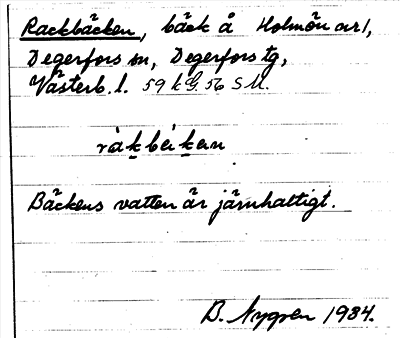 Rackbäcken, bäck å Holmön arl,
Degerfors sn, Degerfors tg,
Västerb. l. 59 kG. 56 SM.
Bäckens vatten är järnhaltigt.
B. Nygren 1934.